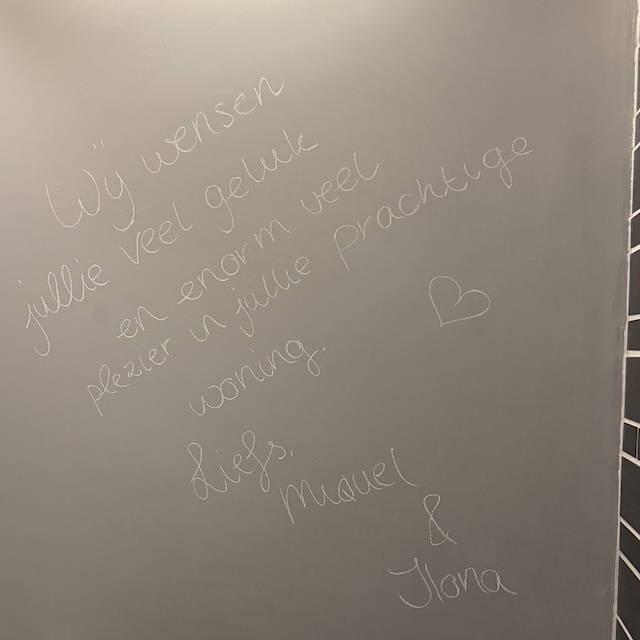 Wij wensen
jullie veel geluk
en enorm veel
plezier in jullie prachtige
woning.
Liefs,
Miquel
&
Ilona